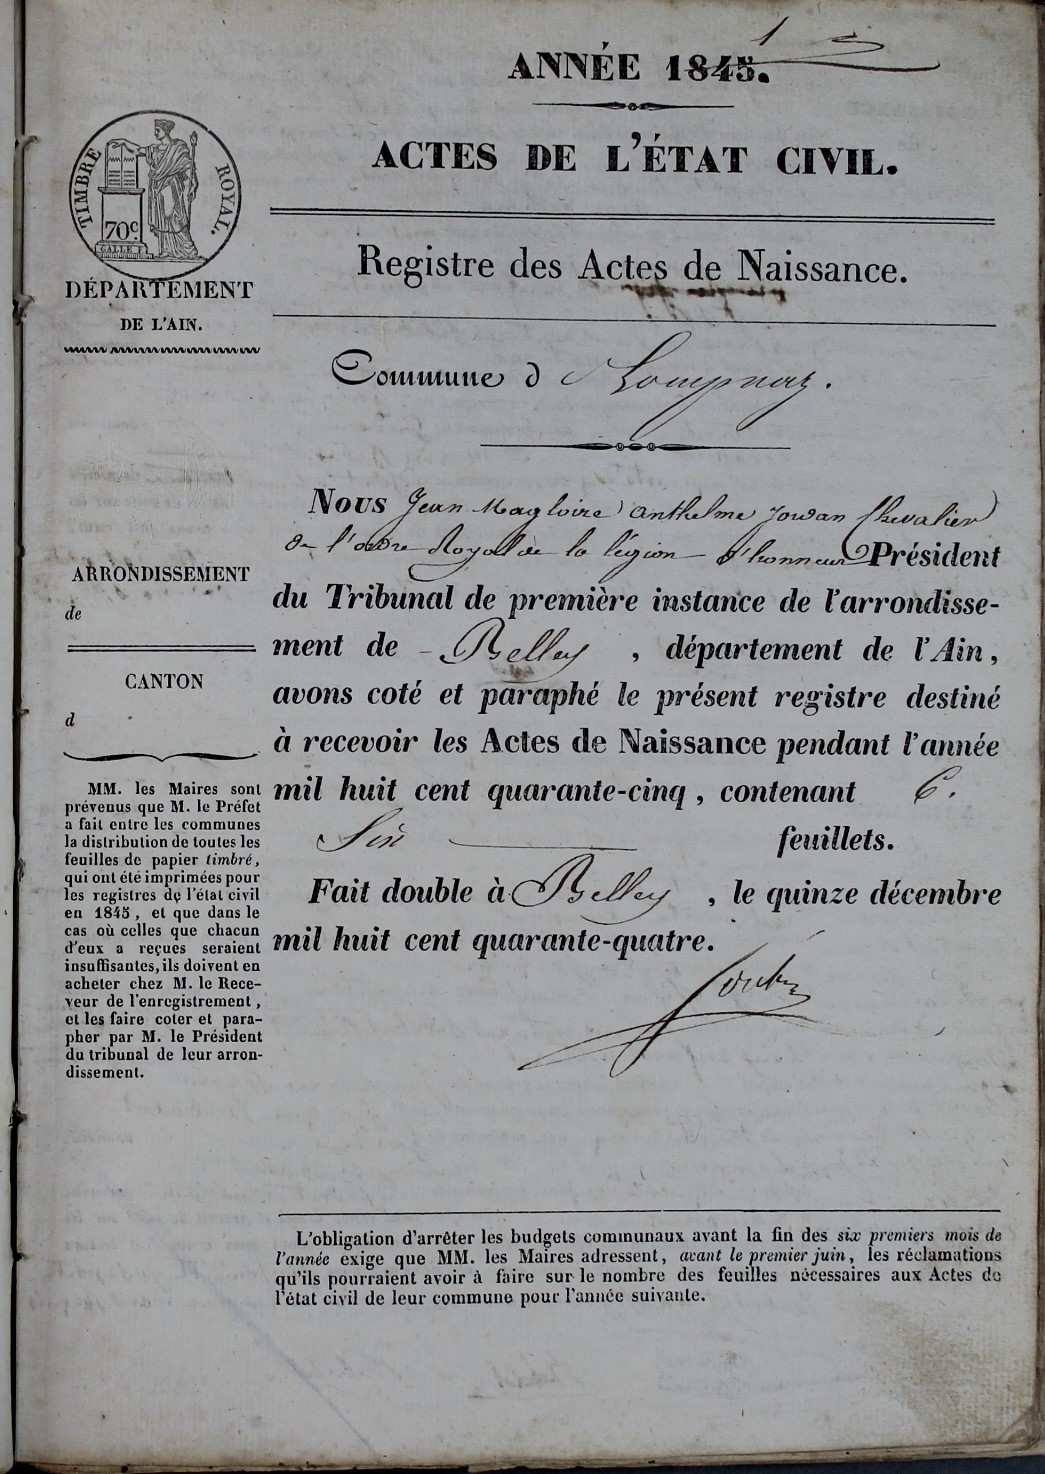 1
ANNÉE 1845.
ACTES DE L'ÉTAT CIVIL.
TIMBRE ROYAL.
70c.
GALLE F.
DÉPARTEMENT
DE L'AIN.
Registre des Actes de Naissance.
Commune d Lompnaz.
Nous Jean Magloire Anthelme Jordan Chevalier
de l'ordre Royal de la légion d'honneur Président
du Tribunal de première instance de l'arrondisse-
ment de Belley, département de l'Ain,
avons coté et paraphé le présent registre destiné
à recevoir les Actes de Naissance pendant l'année
mil huit cent quarante-cinq, contenant 6.
Six feuillets.
Fait double à Belley, le quinze décembre
mil huit cent quarante-quatre.
ARRONDISSEMENT
de
CANTON
d
MM. les Maires sont
prévenus que M. le Préfet
a fait entre les communes
la distribution de toutes les
feuilles de papier timbré,
qui ont été imprimées pour
les registres de l'état civil
en 1845, et que dans le
cas où celles que chacun
d'eux a reçues seraient
insuffisantes, ils doivent en
acheter chez M. le Rece-
veur de l'enregistrement,
et les faire coter et para-
pher par M. le Président
du tribunal de leur arron-
dissement.
L'obligation d'arrêter les budgets communaux avant la fin des six premiers mois de
l'année exige que MM. les Maires adressent, avant le premier juin, les réclamations
qu'ils pourraient avoir à faire sur le nombre des feuilles nécessaires aux Actes de
l'état civil de leur commune pour l'année suivante.